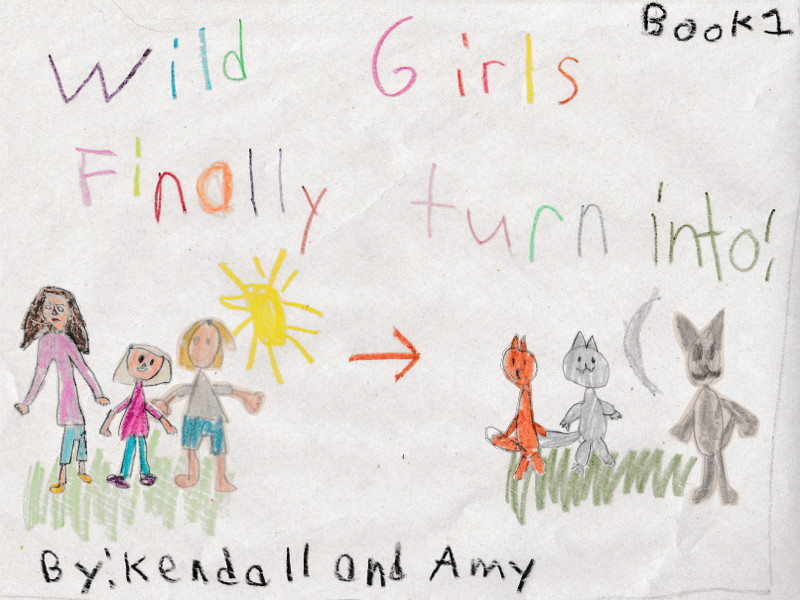 Book 1
Wild Girls
Finally turn into:
By: Kendall and Amy